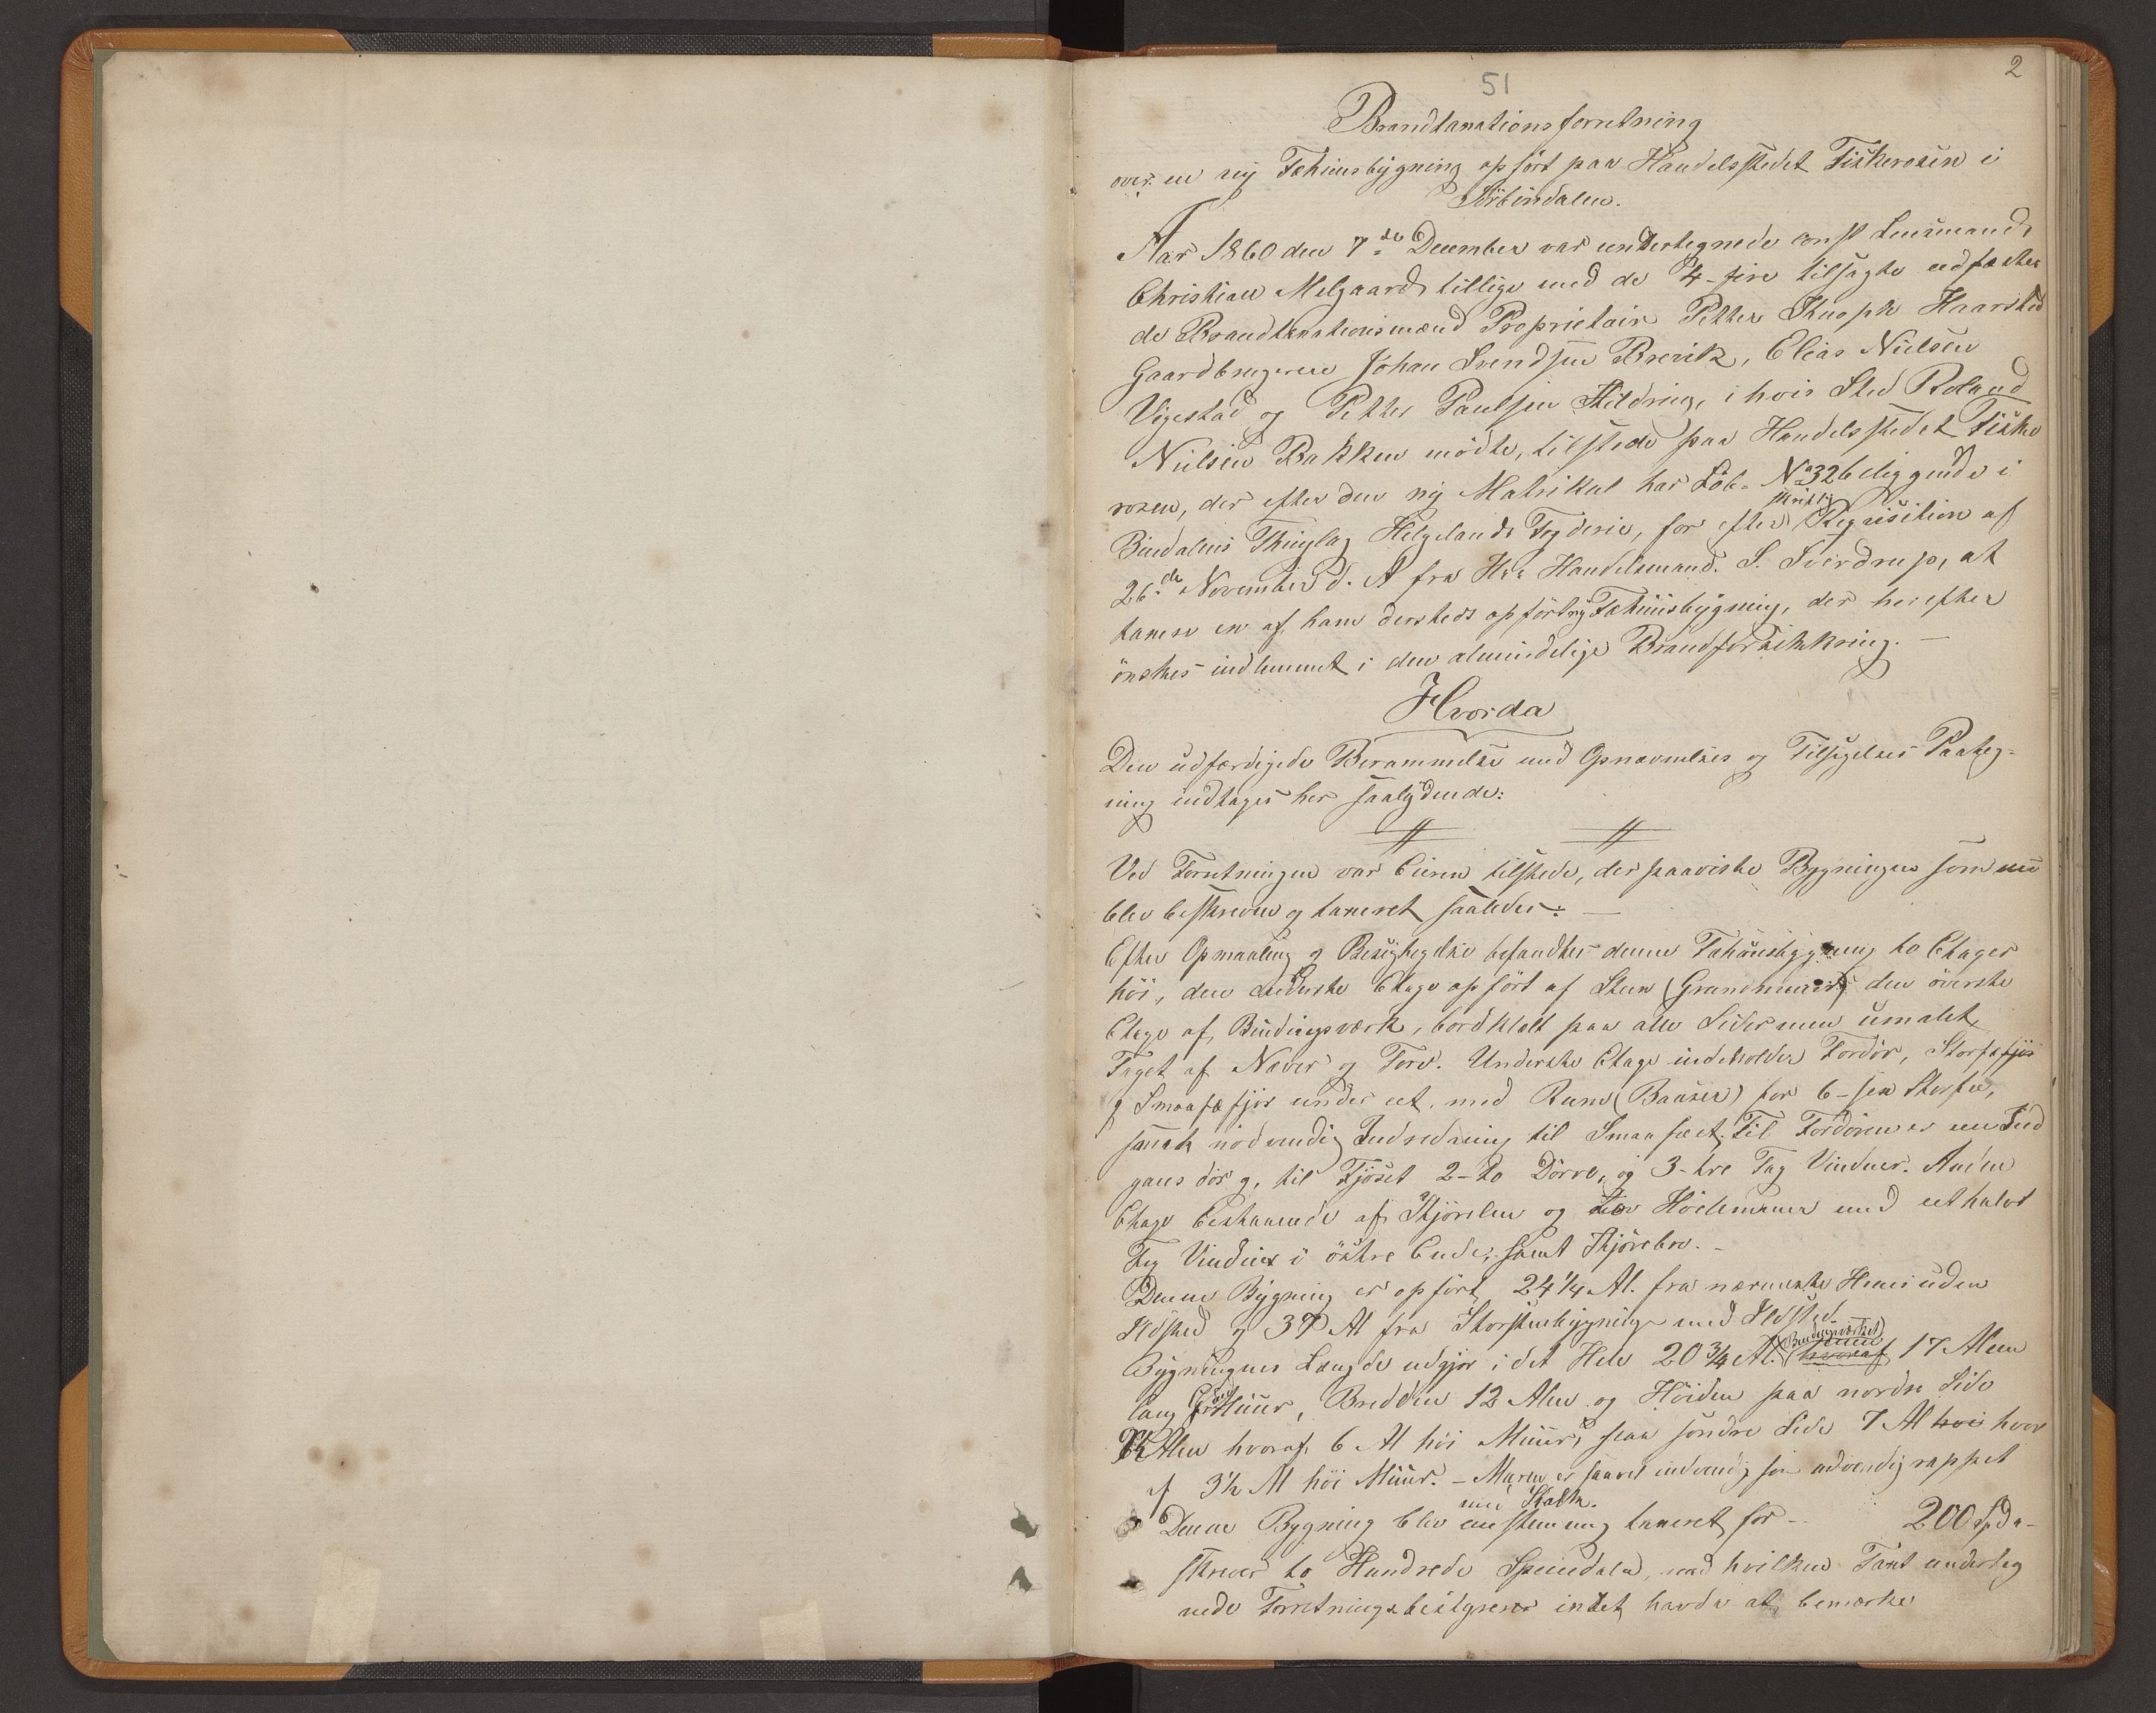 2
51
Brandtaxationsforretning
over en ny Fæhuusbygning opført paa Handelsstedet Fiskerosen i
Sörbindalen.
Aar 1860 den 7de December var undertegnede const Lensmand,
Christian Melgaard tillige med de 4-fire tilsagte edfæstede
de Brandtaxationsmænd Proprietair Petter Knoph Haarstad
Gaardbrugerne Johan Svendsen Brevik, Elias Nielsen
Vigestad og Petter Paulsen Kildring, i hvis Sted Roland
Nielsen Bakken mödte, tilstede paa Handelsstedet Fiske
rosen, der efter den ny Matrikul har Löb. No 326 beliggende i
Bindalens Thinglag Helgelands Fogderie, for efter skriftlig Requisition af
26de November d. A fra Hr. Handelsmand S. Sverdrup, at
taxere en af ham dersteds opfört ny Fæhuusbygning, der herefter
önskes indlemmet i den almindelige Brandforsikkring. —
Hvorda
Den udfærdigede Berammelse med Opnævnelses og Tilsigelses Paateg-
ning indtages her saalydende:
// //
Ved Forretningen var Eieren tilstede, der paaviste Bygningen som nu
blev beskreven og taxeret saaledes: —
Efter Opmaaling og Besigtigelse befandtes denne Fæhuusbygning to Etager
höi, den underste Etage opfört af Steen (Graasteensmuur) den överste
Etage af Bindingsværk, bordklædt paa alle Sider men umalet,
Taget af Næver og Torv. Underste Etage indeholder Fordör, Storfæfjös
og Smaafæfjös under eet, med Rum (Baaser) for 6-sex Storfæ,
samt nödvendig Indredning til Smaafæet. Til Fordören er een Ind
gans dör og til Fjöset 2-to Dörre, og 3-tre Fag Vinduer. Anden
Etage bestaaende af Kjörelen og Höelemmer med et halvt
Fag Vindue i östre Ende, samt Kjörebro. -
Denne Bygning er opfört 24 1/4 Al. fra nærmeste Huus uden
Ildsted og 37 Al fra Storstuebygningen med Ildsted.
Bygningens Længde udgjör i det Hele 20 3/4 Al. Bindingsværket hvoraf 17 Alen
lang Muur, Bredden 12 Alen og Höiden paa nordre Side
Alen hvoraf 6 Al höi Muur, paa söndre Side 7 Al höi hvor
af 3 1/2 Al höi Muur. - Muren er saavel indvendig som udvendig rappet
med Kalk.
Denne Bygning blev eenstemmig taxeret for - 200 Spd -
skriver to Hundrede Speciedaler, ved hvilken Taxt underteg
nede Forretningsbestyrer intet havde at bemærke